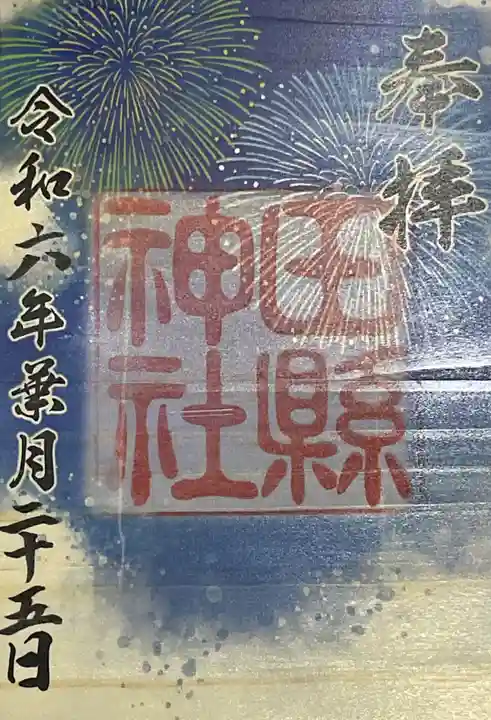 奉拝
田縣
神社
令和六年葉月二十五日